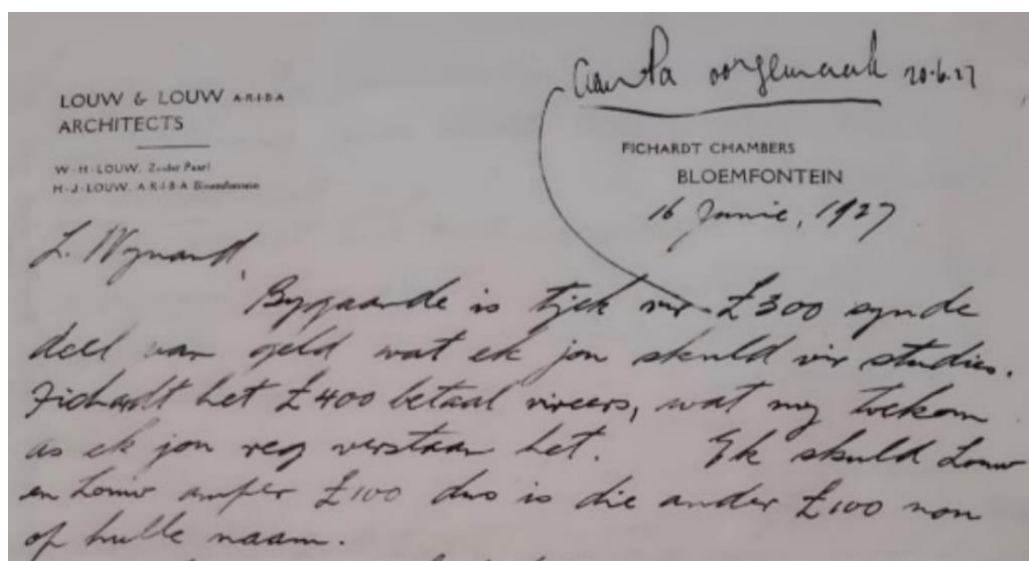 aan Pa oorgemaak 20.6.27
LOUW & LOUW A·R·I·B·A
ARCHITECTS
W·H·LOUW, Zuider Paarl
H·J·LOUW, A·R·I·B·A Bloemfontein
FICHARDT CHAMBERS
BLOEMFONTEIN
16 Junie, 1927
L. Wynand,
Bygaande is tjek vir £300 synde
deel van geld wat ek jou skuld vir studies.
Fichardt het £400 betaal vireers, wat my toekom
as ek jou reg verstaan het. Ek skuld Louw
en Louw amper £100 dus is die ander £100 nou
op hulle naam.